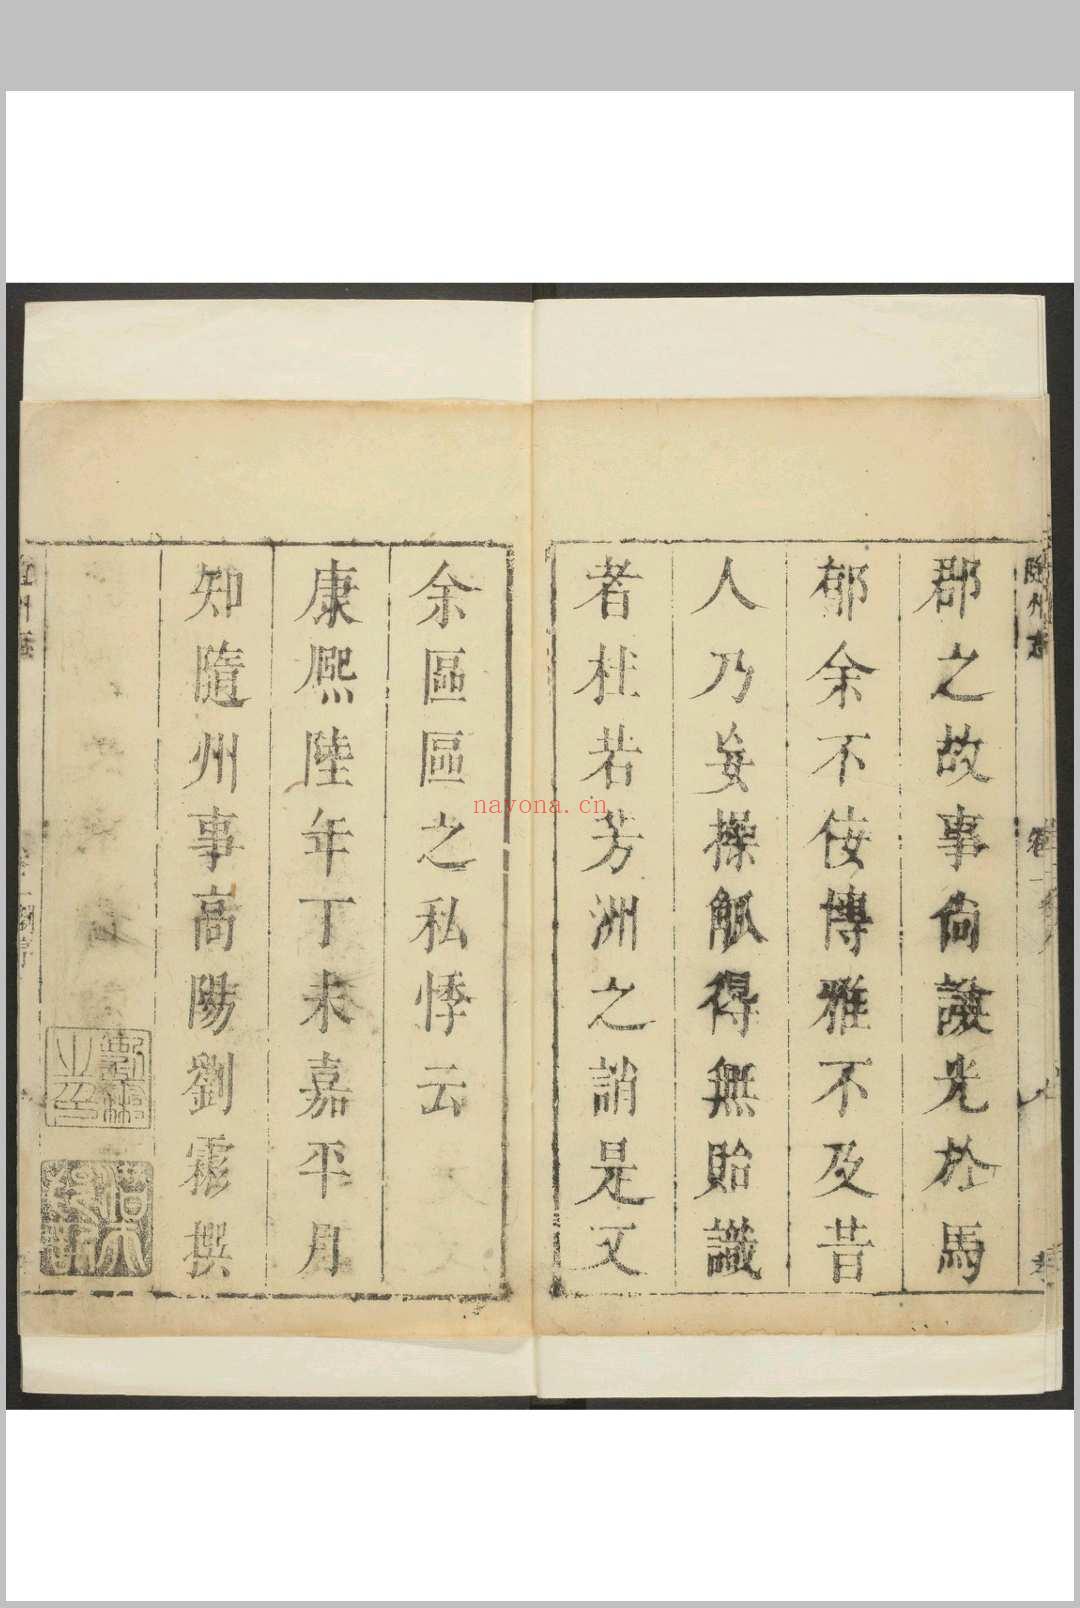 隨州志
卷一
郡之故事倘謏光於馬
郁余不佞博雅不及昔
人乃妄操觚得無貽譏
者杜若芳洲之誚是又
余區區之私悸云
康熙陸年丁未嘉平月
知隨州事高陽劉霦撰
nayona.cn